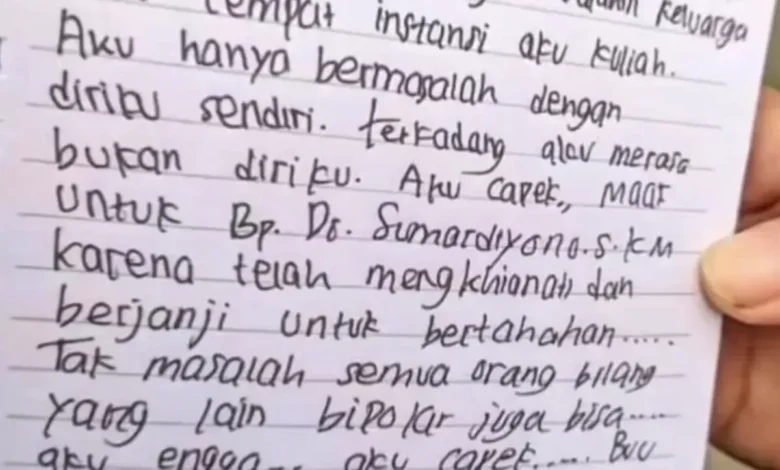 tempat instansi aku kuliah. Keluarga
Aku hanya bermasalah dengan
diriku sendiri. terkadang aku merasa
bukan diriku. Aku capek,, maaf
untuk Bp. Dr. Sumardiyono.S.KM
karena telah mengkhianati dan
berjanji untuk bertahahan.....
Tak masalah semua orang bilang
yang lain bipolar juga bisa.....
aku engga... aku capek.... Buu